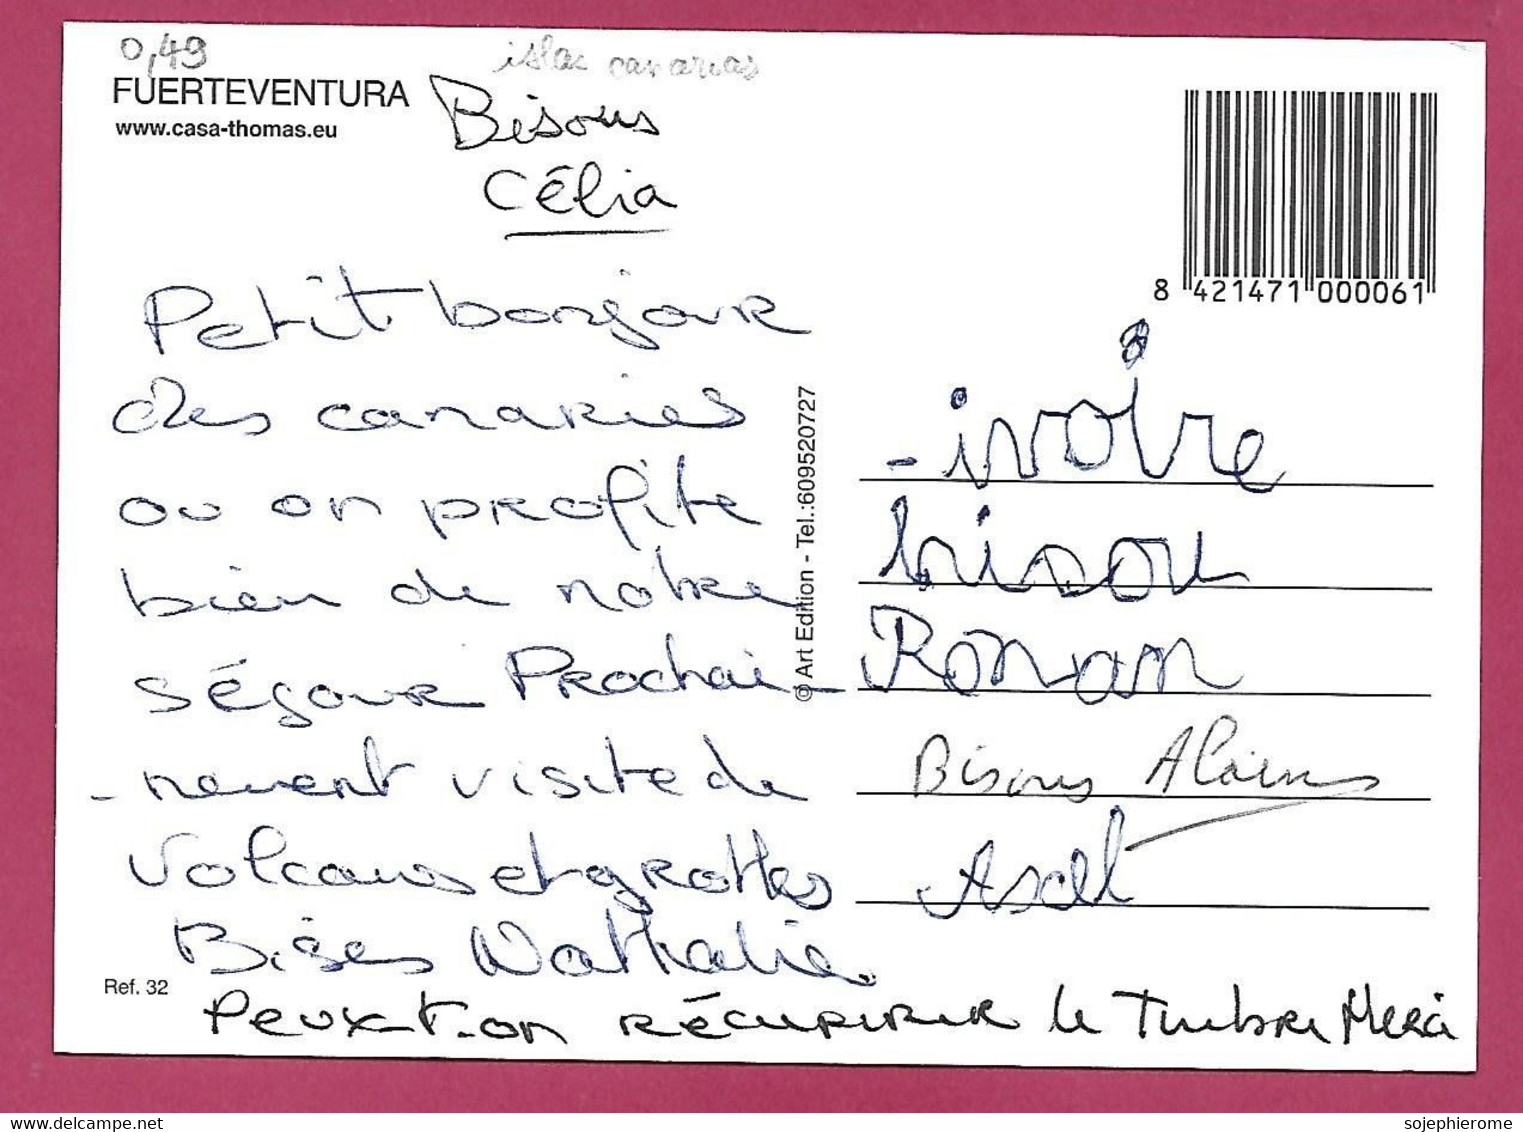 0,49
islas canarias
FUERTEVENTURA
www.casa-thomas.eu
Bisous
Célia
8 421471 000061
Petit bonjour
des canaries
ou on profite
bien de notre
séjour Prochai
-nement visite de
Volcans et grottes
Bises Nathalie
© Art Edition - Tel.:609520727
- ivoire
bisou
Ronan
Bisous Alain
Axel
Ref. 32
Peux-t-on récupérer le Timbre Merci
delcampe.net
sojephierome